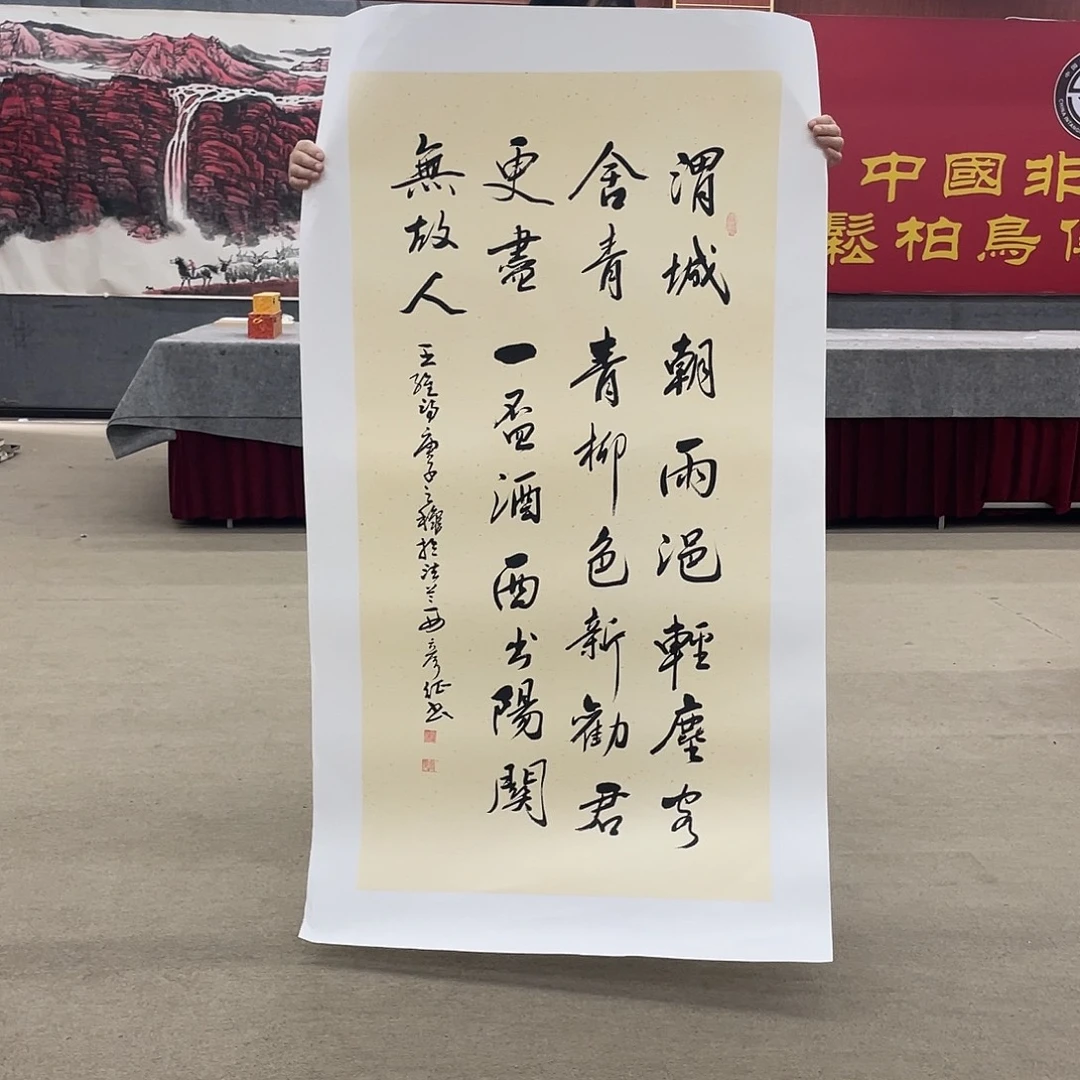 渭城朝雨浥輕塵客
舍青青柳色新勸君
更盡一盃酒西出陽關
無故人
王維詩庚子之穐於法兰西彦征书
中國非
鬆柏鳥